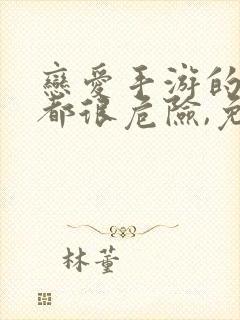 戀愛手游的
都很危險,免
林董